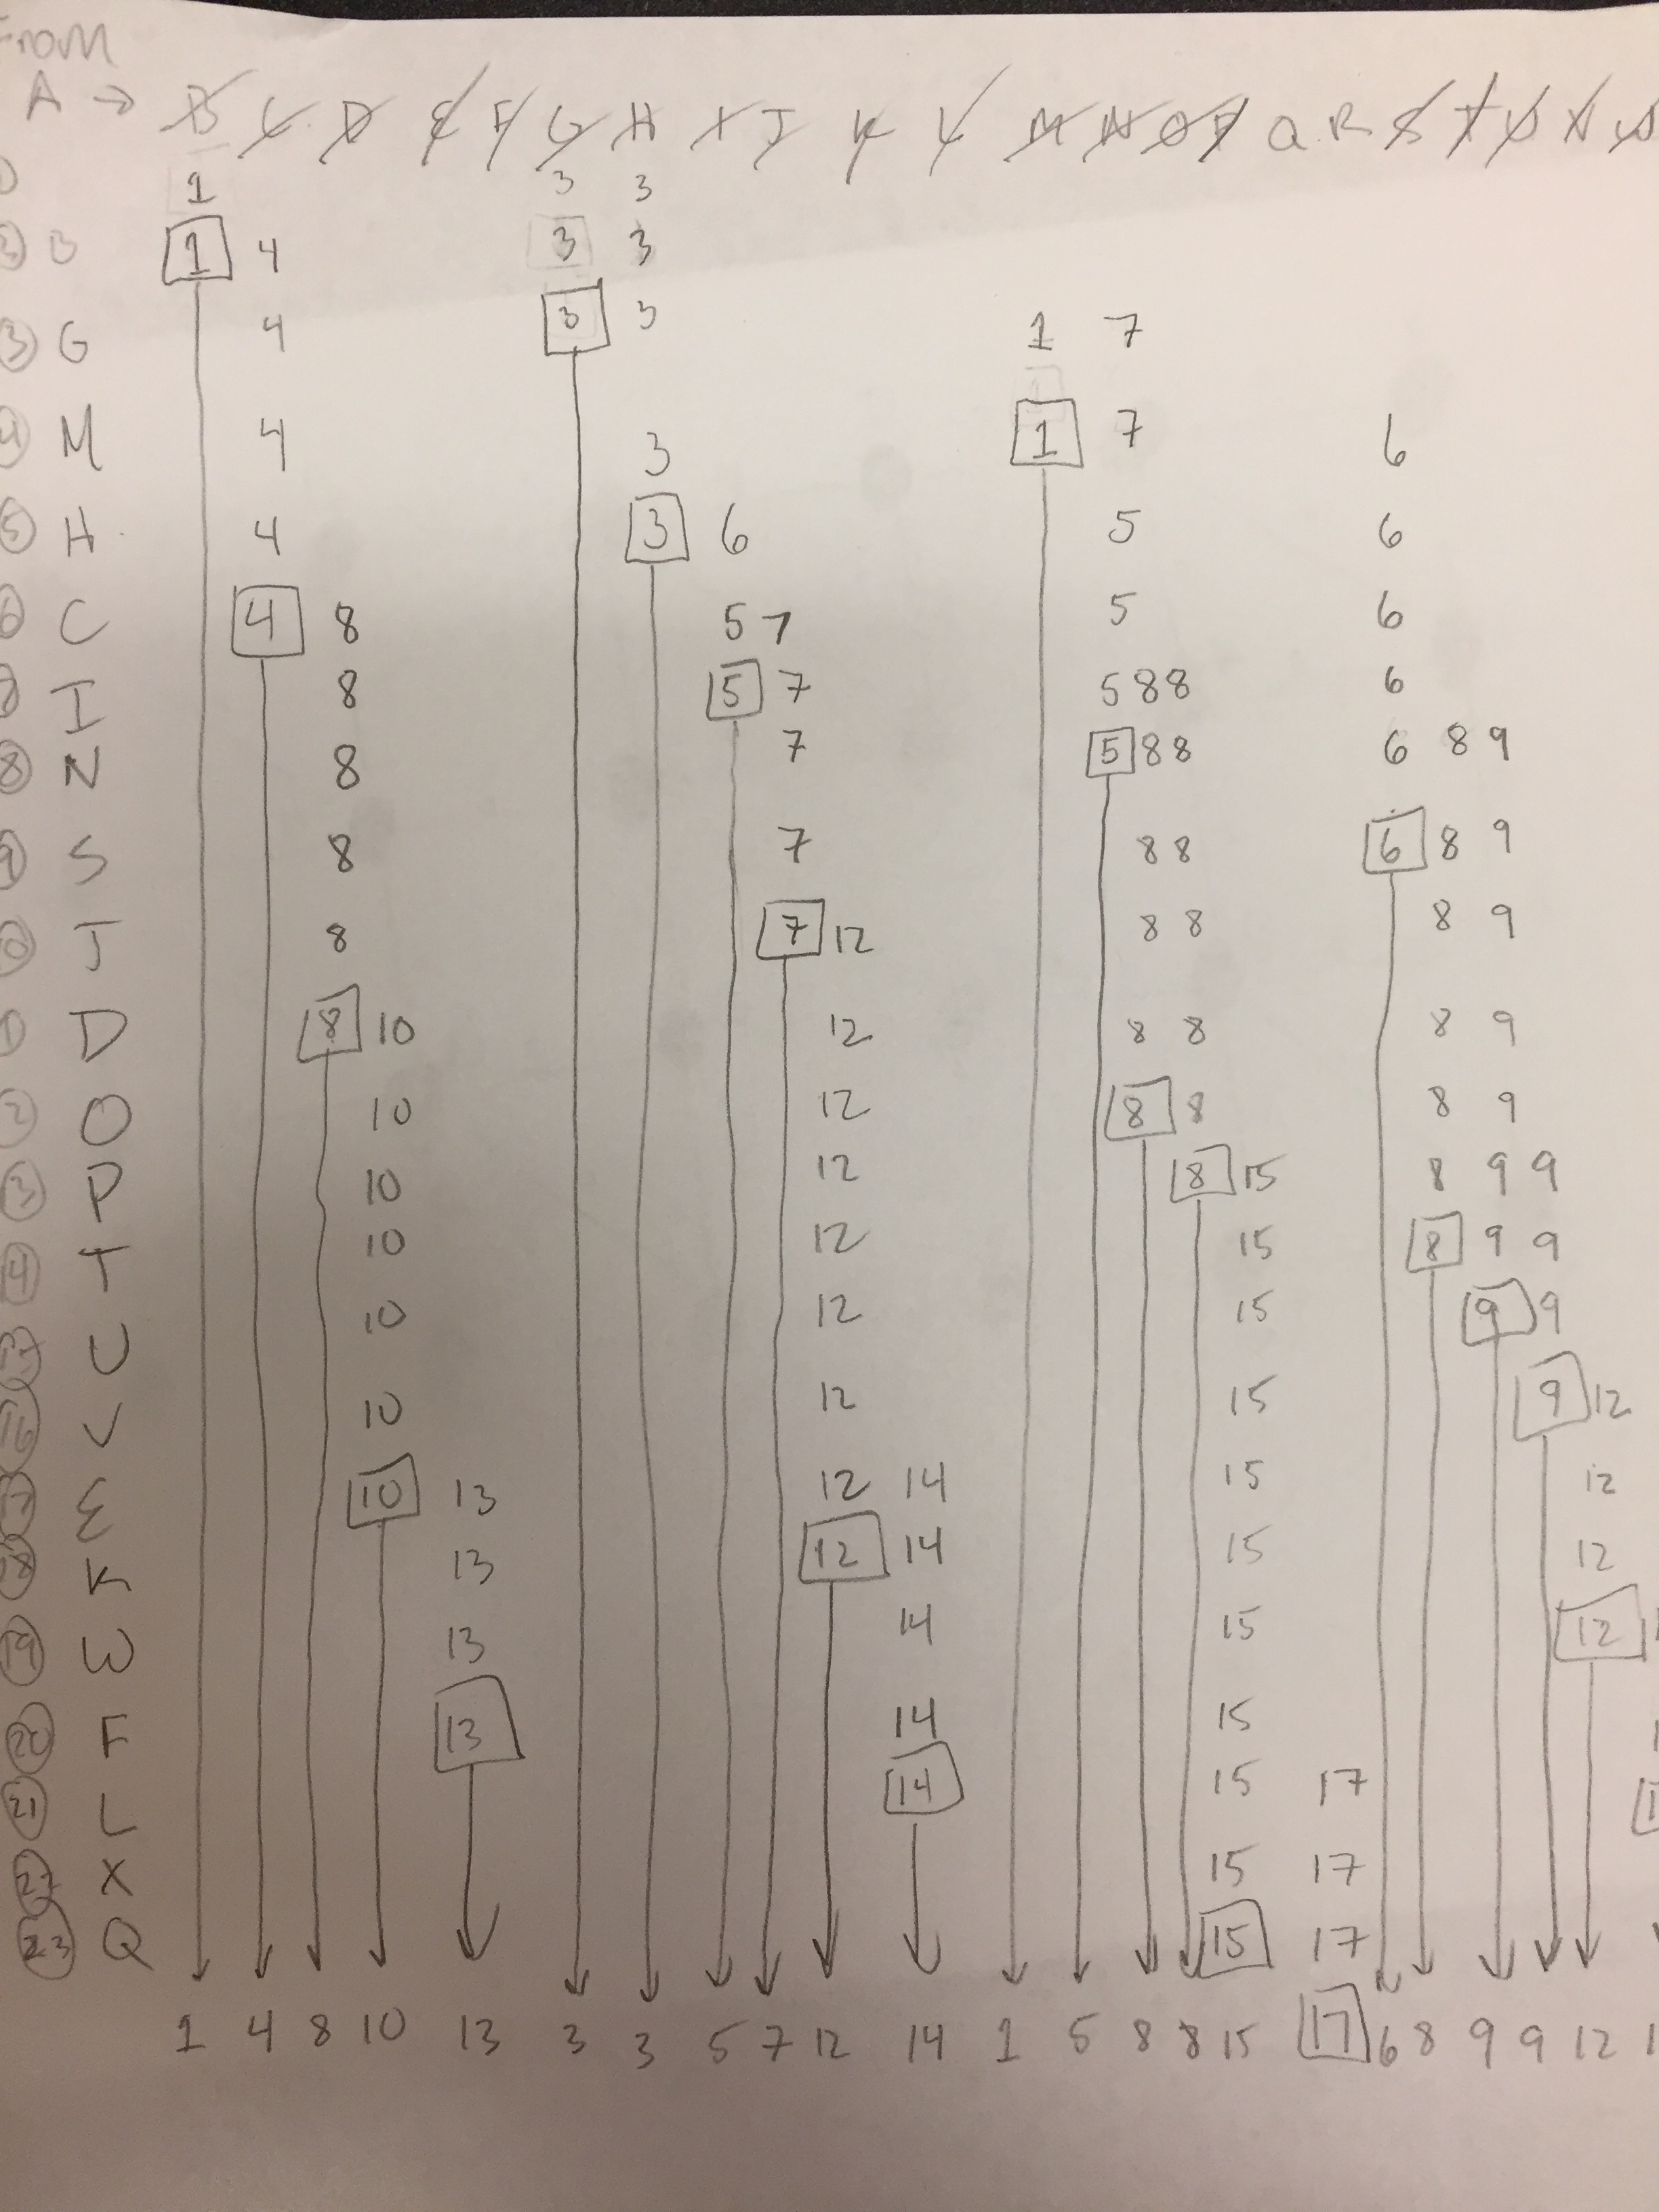 From
A → B C D E F G H I J K L M N O P Q R S T U V W
1 3 3
② B 1 4 3 3
③ G 4 3 3 1 7
④ M 4 3 1 7 6
⑤ H 4 3 6 5 6
⑥ C 4 8 5 7 5 6
I 8 5 7 5 8 8 6
⑧ N 8 7 5 8 8 6 8 9
⑨ S 8 7 8 8 6 8 9
J 8 7 12 8 8 8 9
D 8 10 12 8 8 8 9
O 10 12 8 8 8 9
P 10 12 8 15 8 9 9
T 10 12 15 8 9 9
U 10 12 15 9 9
16 V 10 12 15 9 12
E 10 13 12 14 15 12
18 K 13 12 14 15 12
19 W 13 14 15 12
20 F 13 14 15
21 L 14 15 17
22 X 15 17
23 Q 15 17
1 4 8 10 13 3 3 5 7 12 14 1 5 8 8 15 17 6 8 9 9 12